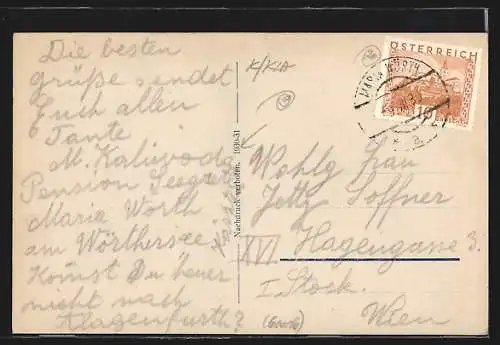 Die besten
grüße sendet
Euch allen
Tante
M. Kaliwoda
Pension Seeger
Maria Wörth
am Wörthersee
Kom̄st Du heuer
nicht nach
Klagenfurth?
K/KLA
Nachdruck verboten. 1030-31
ÖSTERREICH
10
MARIA WÖRTH
Wohlg Frau
Jetty Soffner
Hagengasse 3.
XVI.
I Stock.
Wien